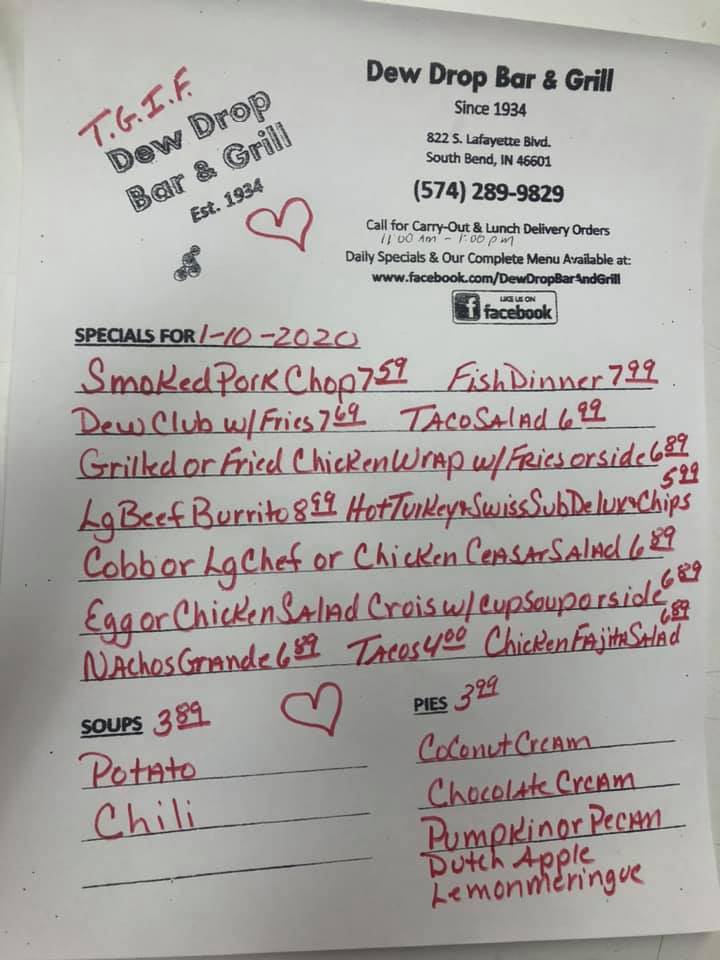 T.G.I.F.
Dew Drop
Bar & Grill
Est. 1934
Dew Drop Bar & Grill
Since 1934
822 S. Lafayette Blvd.
South Bend, IN 46601
(574) 289-9829
Call for Carry-Out & Lunch Delivery Orders
11:00 Am - 1:00 pm
Daily Specials & Our Complete Menu Available at:
www.facebook.com/DewDropBarAndGrill
LIKE US ON
facebook
SPECIALS FOR 1-10-2020
Smoked Pork Chop 7 59 Fish Dinner 7 99
Dew Club w/ Fries 7 69 Taco Salad 6 99
Grilled or Fried Chicken Wrap w/ Fries or side 6 89
Lg Beef Burrito 8 99 Hot Turkey & Swiss Sub Delux & Chips 5 99
Cobb or Lg Chef or Chicken Ceasar Salad 6 89
Egg or Chicken Salad Crois w/ cup soup or side 6 89
Nachos Grande 6 89 Tacos 4 00 Chicken Fajita Salad 6 89
SOUPS 3 89
Potato
Chili
PIES 3 99
Coconut Cream
Chocolate Cream
Pumpkin or Pecan
Dutch Apple
Lemon meringue